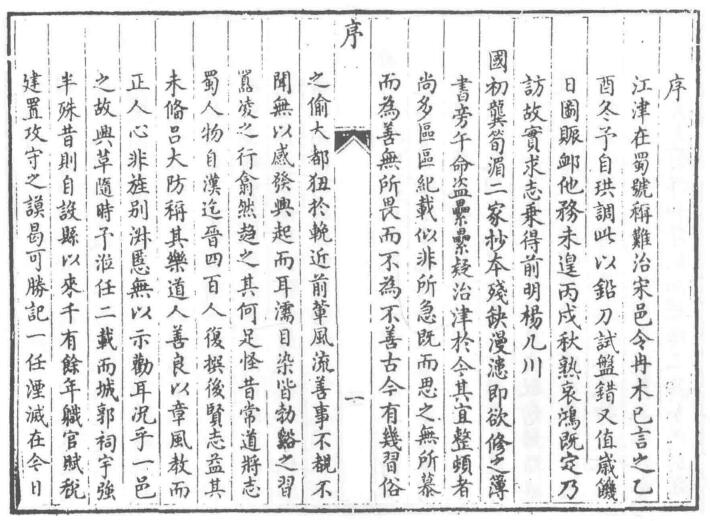 序
江津在蜀號稱難治宋邑令冉木已言之乙
酉冬予自珙調此以鉛刀試盤錯又值嵗饑
日圖賑邺他務未遑丙戌秋熟哀鴻既定乃
訪故實求志乗得前明楊几川
國初龔筍湄二家抄本殘缺漫漶即欲修之簿
書旁午命盗纍纍疑治津於今其宜整頓者
尚多區區紀載似非所急既而思之無所慕
而為善無所畏而不為不善古今有幾習俗
序
一
之偷大都狃於輓近前輩風流善事不覩不
聞無以感發興起而耳濡目染皆勃谿之習
嚚凌之行翕然趋之其何足怪昔常道將志
蜀人物自漢迄晉四百人復撰後賢志益其
未備吕大防稱其樂道人善良以章風教而
正人心非旌别淑慝無以示勸耳況乎一邑
之故興革隨時予涖任二載而城郭祠宇强
半殊昔則自設縣以來千有餘年職官賦税
建置攻守之謨曷可勝記一任湮滅在令日